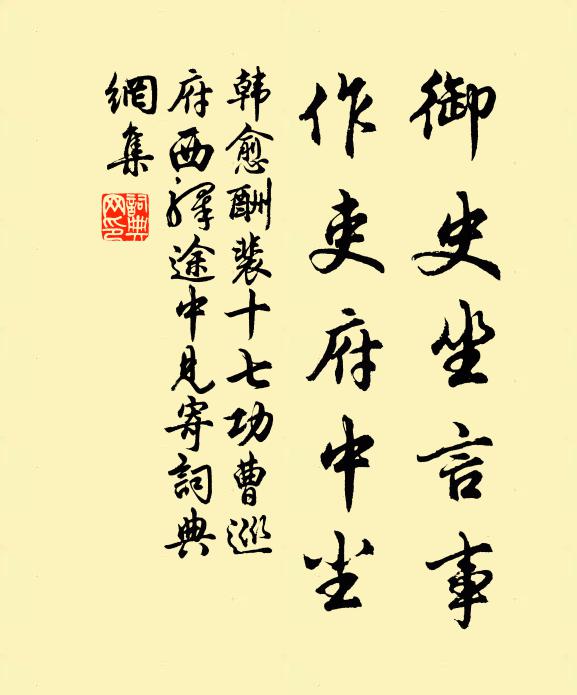 御史坐言事
作吏府中尘
韓愈酬裴十七功曹巡
府西驛途中見寄詞典
網集
詞典
网印